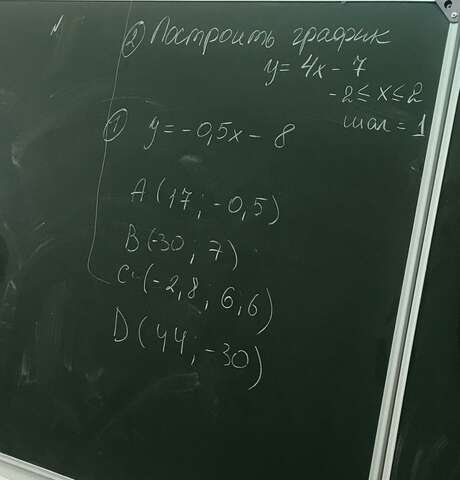 ② Построить график
y = 4x - 7
-2 ≤ x ≤ 2
шаг = 1
① y = -0,5x - 8
A (17; -0,5)
B (-30; 7)
C (-2,8; 6,6)
D (44; -30)